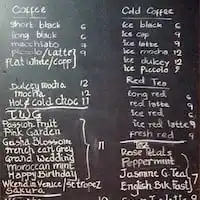 Coffee
short black 6
long black 6
macchiato 7
piccolo/latte 9
flat white/capp
Dulcey mocha 12
mocha 12
Hot & cold choc 11
TWG
Passion Fruit
Pink Garden
Geisha Blossom
french earl grey
Grand wedding
moroccan mint
Happy Birthday
Wkend in Venice/St tropez
Sakura
Cold Coffee
ice black 8
ice cap 9
ice latte 9
ice mocha 12
ice dulcey 12
ice Piccolo 8
Red Tea
long red
red latte 9
ice red 6
ice red latte 9
fresh red 9
Tea
Rose Petals
Peppermint
Jasmine G. Tea
English B.(k Fast)